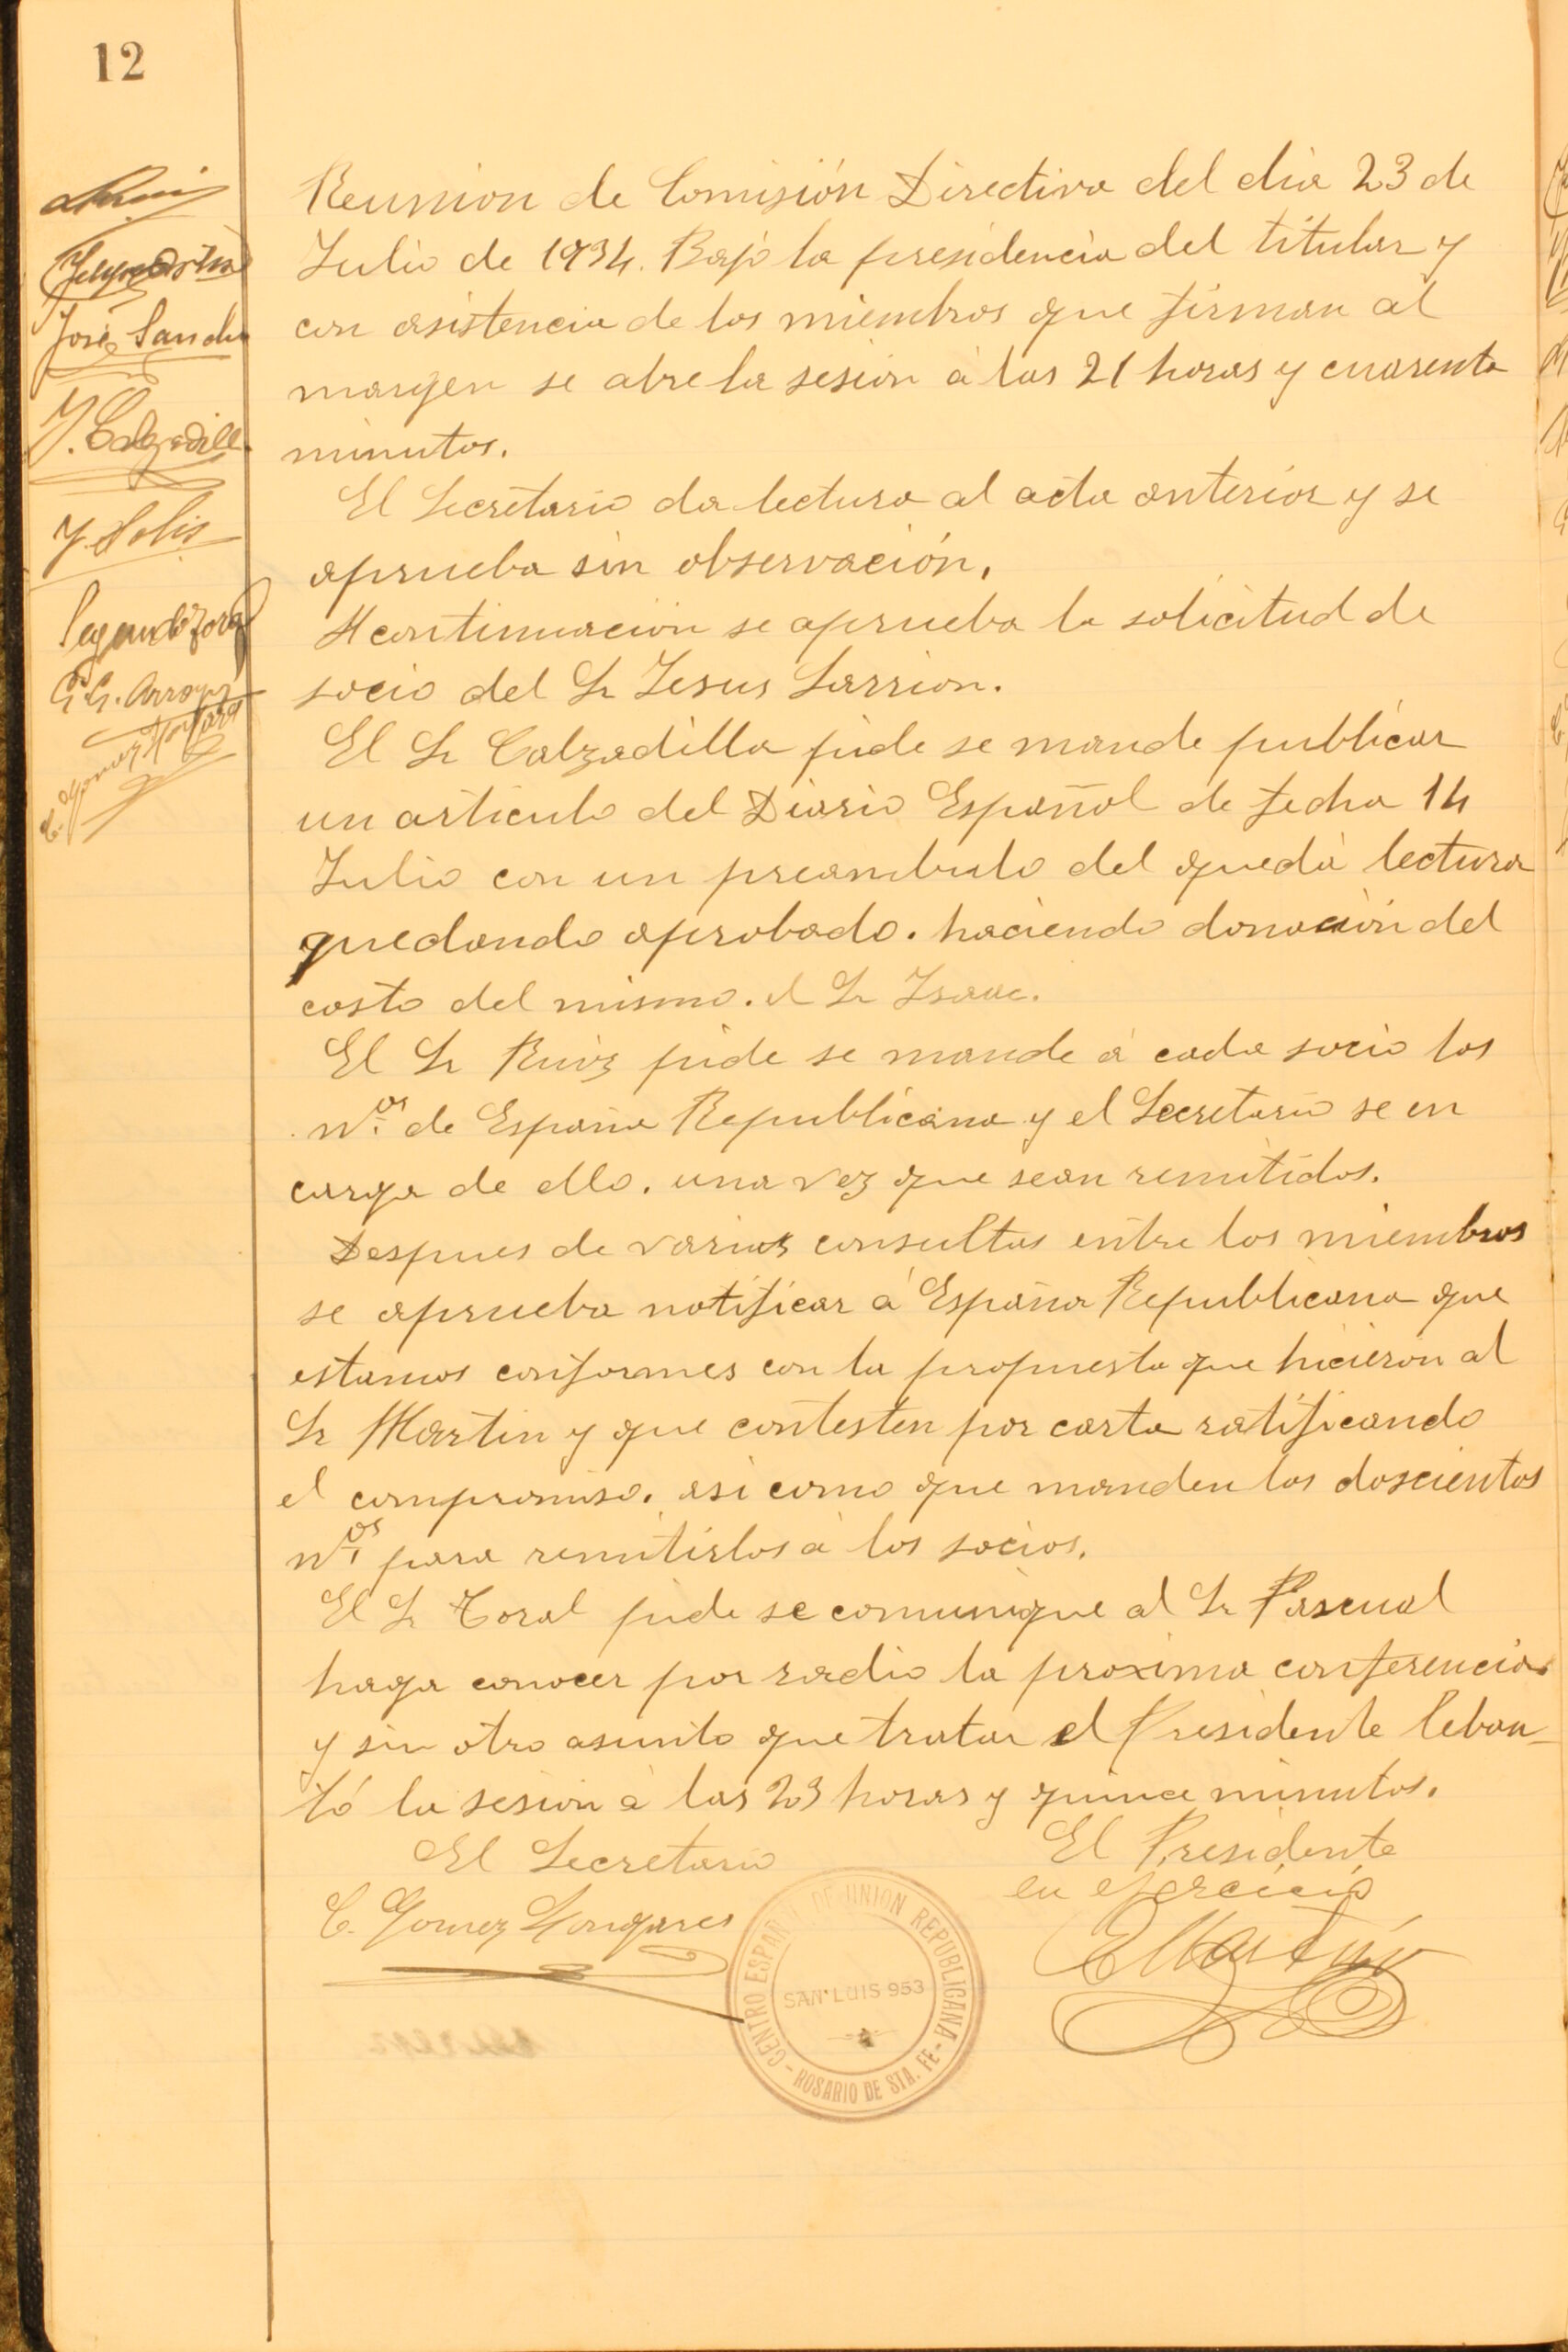 12
José Sanche
J. Calzadill
J. Solis
Segundo Toral
G. G. Arroyo
C. Gomez
Reunion de Comisión Directiva del dia 23 de
Julio de 1934. Bajo la presidencia del titular y
con asistencia de los miembros que firman al
margen se abre la sesion á las 21 horas y cuarenta
minutos.
El Secretario da lectura al acta anterior y se
aprueba sin observación.
A continuacion se aprueba la solicitud de
socio del Sr Jesus Larrion.
El Sr Calzadilla pide se mande publicar
un articulo del Diario Español de fecha 14
Julio con un preambulo del que dá lectura
quedando aprobado. haciendo donación del
costo del mismo. el Sr Isaac.
El Sr Ruiz pide se mande á cada socio los
nos. de España Republicana y el Secretario se en
carga de ello. una vez que sean remitidos.
Despues de varias consultas entre los miembros
se aprueba notificar á España Republicana que
estamos conformes con la propuesta que hicieron al
Sr Martin y que contesten por carta ratificando
el compromiso. asi como que manden los doscientos
nos. para remitirlos á los socios.
El Sr Toral pide se comunique al Sr Pascual
haga conocer por radio la proxima conferencia.
y sin otro asunto que tratar el Presidente leban-
tó la sesion á las 23 horas y quince minutos.
El Secretario
El Presidente
en ejercicio
C. Gomez Hongares
E Martin
CENTRO ESPAÑOL DE UNION REPUBLICANA
SAN LUIS 953
- ROSARIO DE STA. FE -